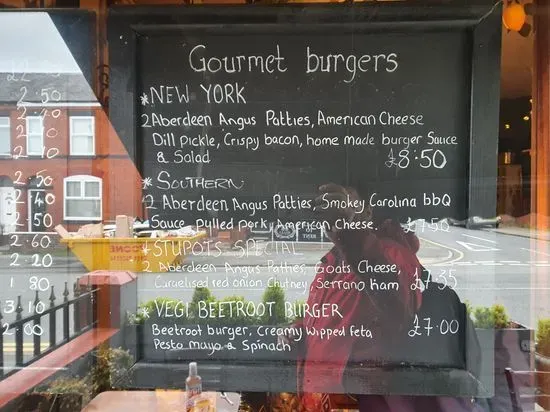 Gourmet burgers
*NEW YORK
2 Aberdeen Angus Patties, American Cheese
Dill Pickle, Crispy bacon, home made burger Sauce
& Salad £8:50
*SOUTHERN
2 Aberdeen Angus Patties, Smokey Carolina bbQ
Sauce pulled pork, American Cheese. £7:50
*STUPOTS SPECIAL
2 Aberdeen Angus Patties, Goats Cheese,
Caruelised red onion Chutney Serrano ham £7:35
*VEGI BEETROOT BURGER
Beetroot burger, Creamy Wipped feta £7:00
Pesto mayo & Spinach
2.50
2.40
2.10
2.50
2.40
2.50
2.60
2.20
1.80
3.10
2.00